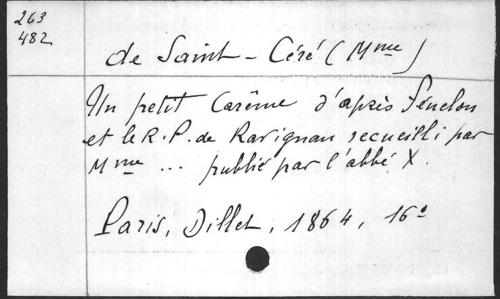 263
482
de Saint-Céré (Mme)
Un petit Carême d'après Fénelon
et le R.P. de Ravignan recueilli par
Mme ... publié par l'abbé X.
Paris, Dillet, 1864, 16°